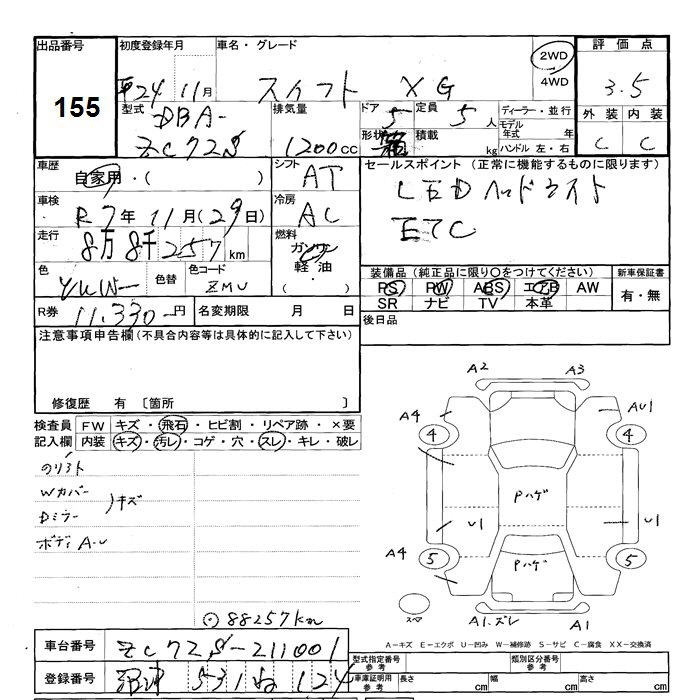 出品番号
155
初度登録年月
平24年11月
車名・グレード
スイフト XG
2WD
4WD
評価点
3.5
外装 内装
C C
型式
DBA-
ZC72S
排気量
1200cc
ドア 5
定員 5人
形状 箱
積載 kg
ディーラー・並行
モデル年式 年
ハンドル 左・右
車歴
自家用・( )
シフト
AT
車検
R7年11月(29日)
冷房
AC
走行
8万8千257km
燃料
ガソリン
軽油
( ・ )
色
色替
色コード
ZMU
R券
11,330円
名変期限 月 日
セールスポイント (正常に機能するものに限ります)
LEDヘッドライト
ETC
装備品(純正品に限り○をつけてください)
PS PW ABS エアB AW
SR ナビ TV 本革
新車保証書
有・無
後日品
注意事項申告欄(不具合内容等は具体的に記入して下さい)
修復歴 有 〔箇所 〕
検査員記入欄
FW キズ・飛石・ヒビ割・リペア跡・×要
内装 キズ・汚レ・コゲ・穴・スレ・キレ・破レ
Wカバー
Dミラー
キズ
ボディA-U
◎88257km
A2 A3
A4 AU1
4 4
Pハゲ
U1 U1
A4
5 5
Pハゲ
スペア
A1.ズレ A1
A-キズ E-エクボ U-凹み W-補修跡 S-サビ C-腐食 XX-交換済
車台番号
ZC72S-211001
登録番号
沼津 531 ね 124
型式指定番号
参考
類別区分番号
参考
車庫証明用
参考
長さ cm
幅 cm
高さ cm